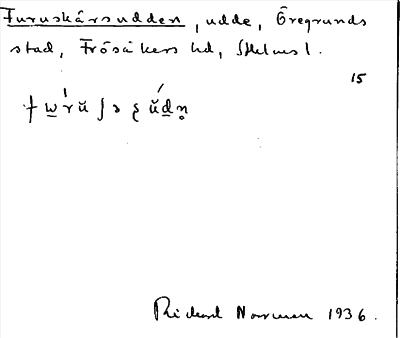 Furuskärsudden, udde, Öregrunds
stad, Frösåkers hd, Sthlms l.
15
Rickard Norrman 1936.